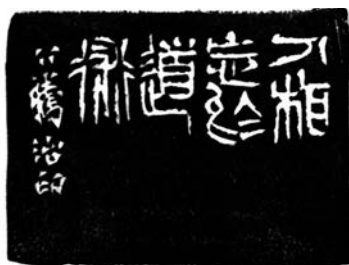 人相
忘於
道
術
騰治印